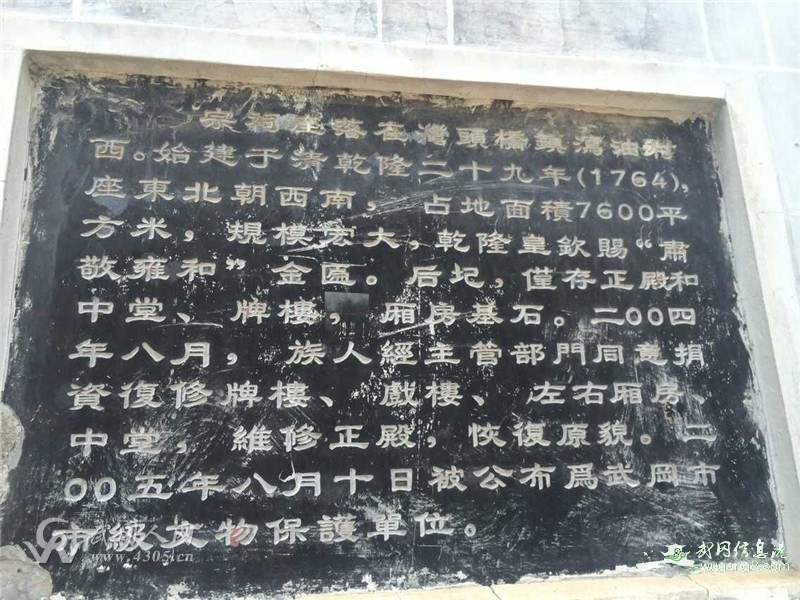 宗祠坐落在灣頭橋鎮瀉油洪
西。始建于清乾隆二十九年(1764),
座東北朝西南，占地面積7600平
方米，規模宏大，乾隆皇欽賜“肅
敬雍和”金匾。后圮，僅存正殿和
中堂、牌樓，厢房基石。二00四
年八月，族人經主管部門同意捐
資復修牌樓、戲樓、左右厢房、
中堂，維修正殿，恢復原貌。二
00五年八月十日被公布爲武岡市
市級文物保護單位。
www.4305.cn
武冈信息港